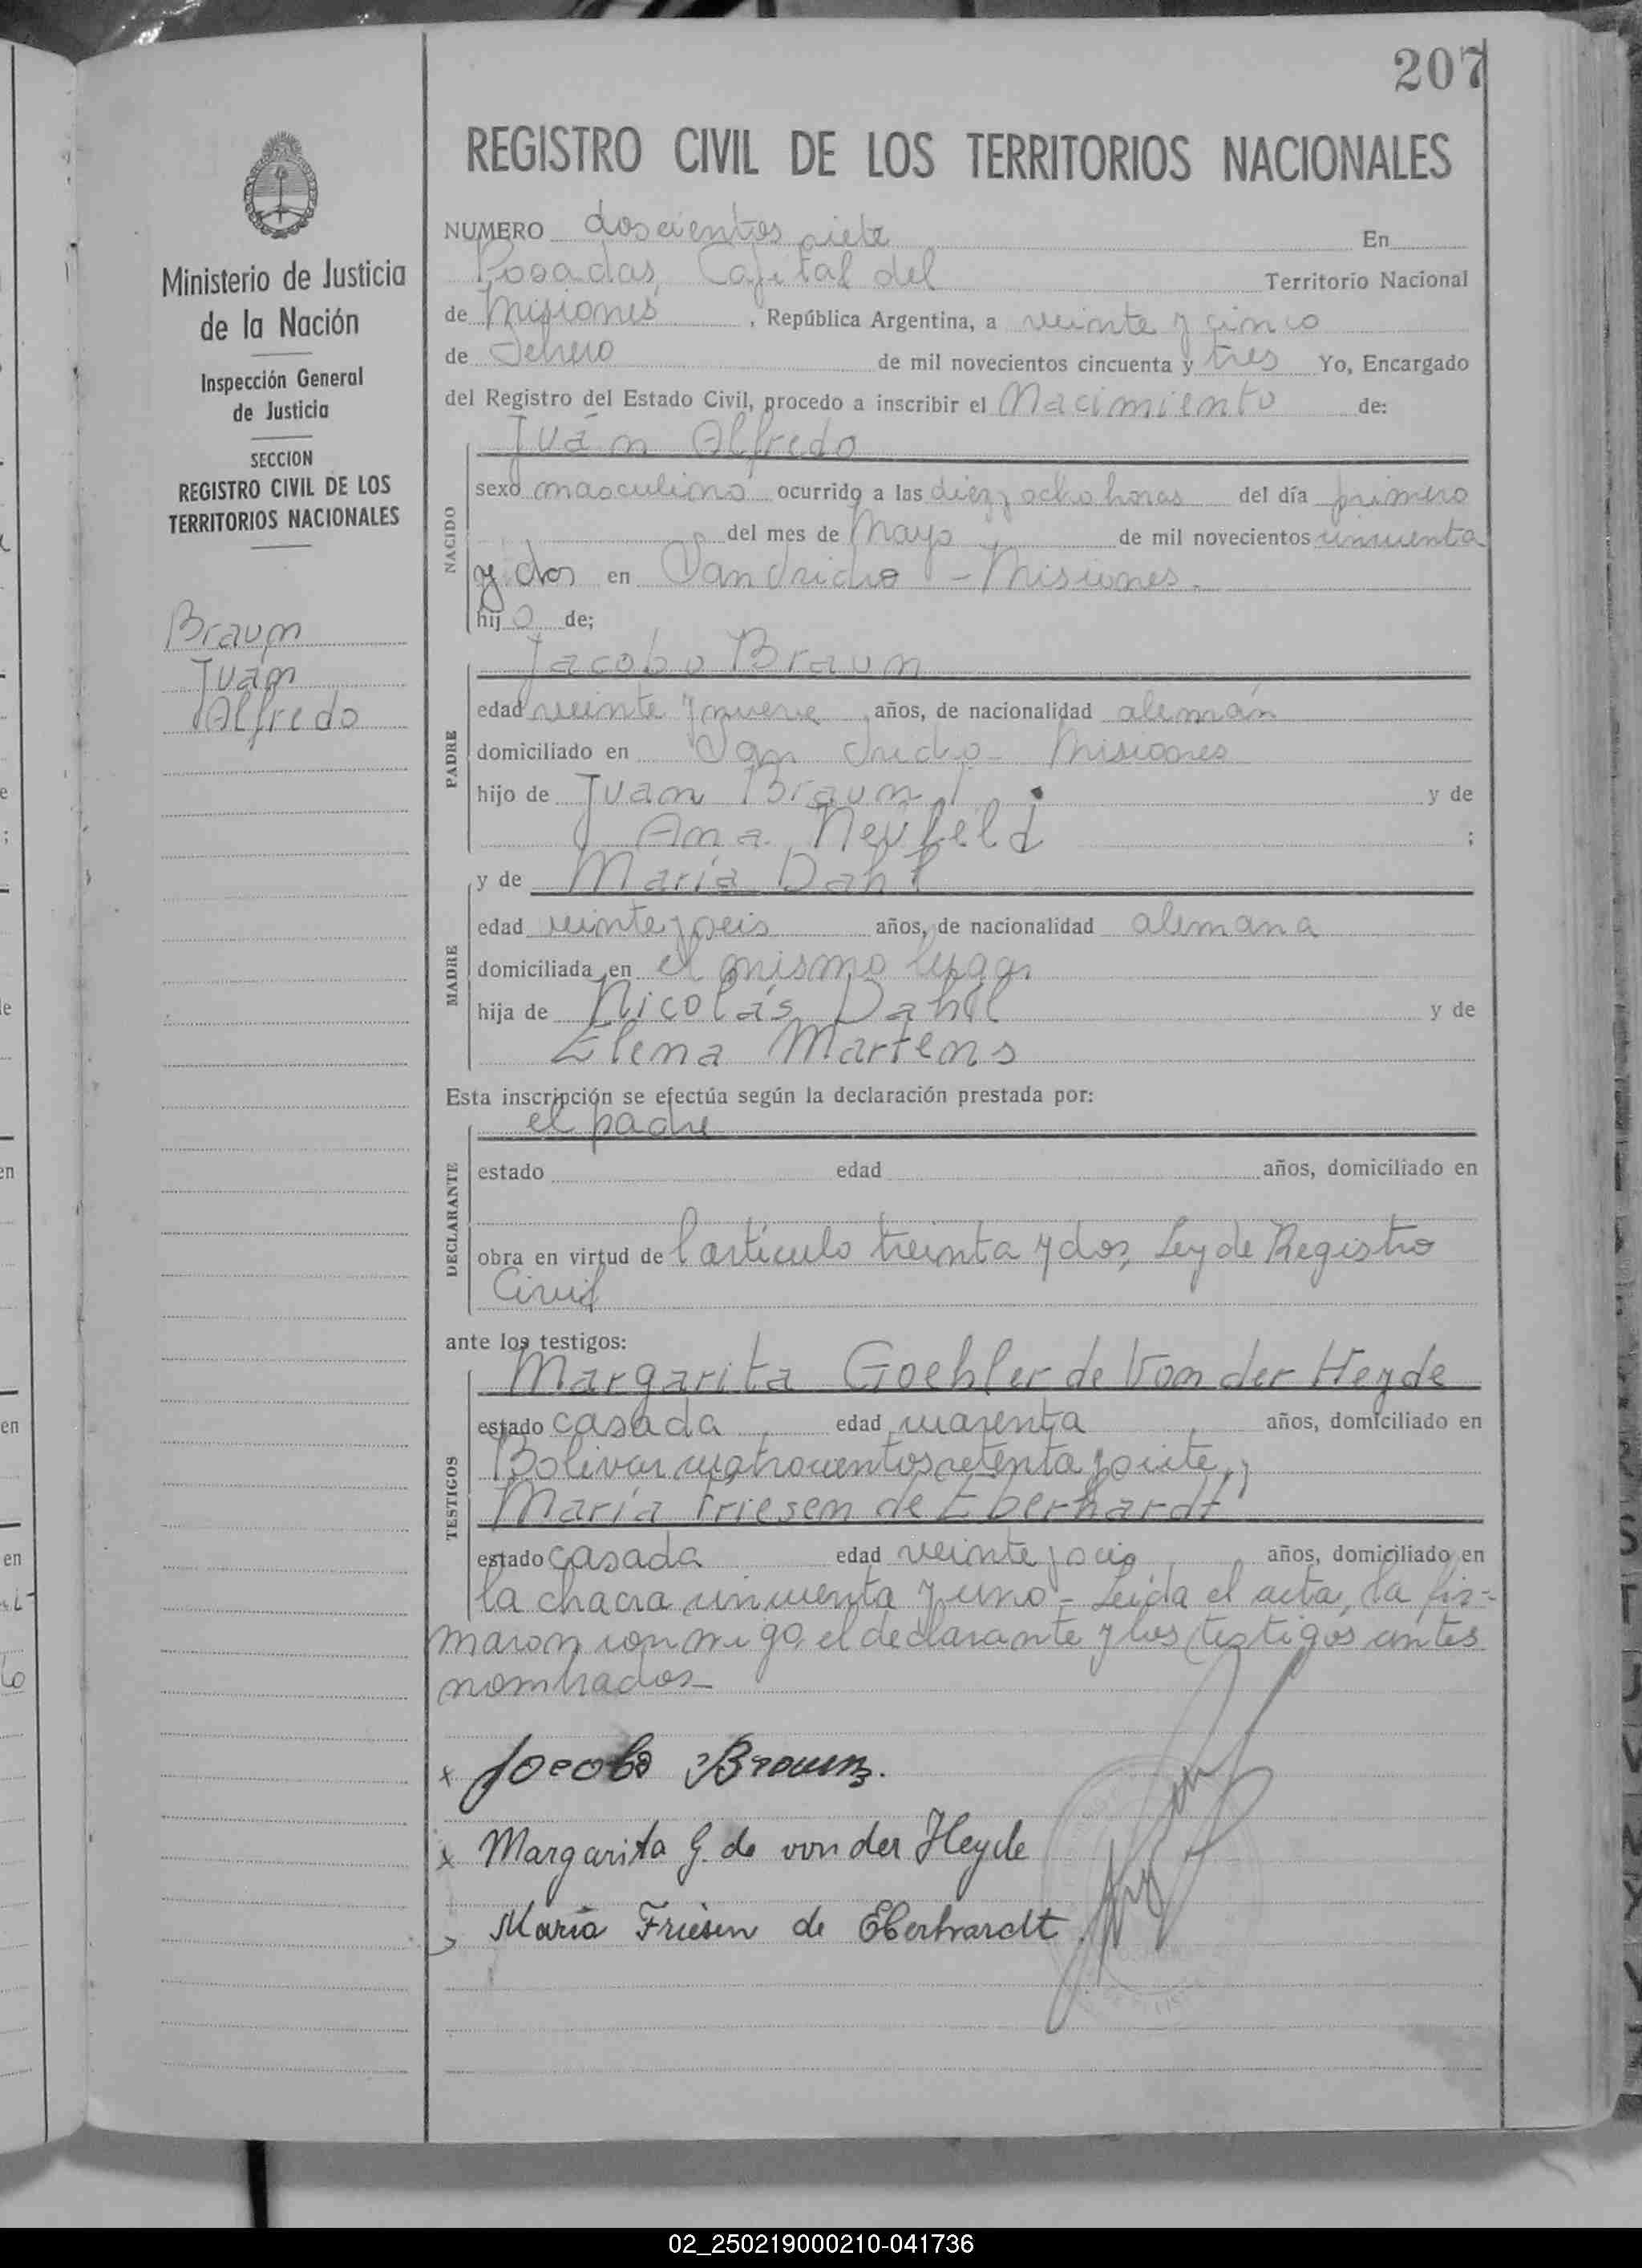 207
REGISTRO CIVIL DE LOS TERRITORIOS NACIONALES
Ministerio de Justicia
de la Nación
Inspección General
de Justicia
SECCION
REGISTRO CIVIL DE LOS
TERRITORIOS NACIONALES
Braun
Juán
Alfredo
NUMERO doscientos siete En
Posadas, Capital del Territorio Nacional
de Misiones, República Argentina, a veinte y cinco
de Febrero de mil novecientos cincuenta y tres Yo, Encargado
del Registro del Estado Civil, procedo a inscribir el Nacimiento de:
Juán Alfredo
NACIDO
sexo masculino ocurrido a las diez y ocho horas del día primero
del mes de Mayo de mil novecientos cincuenta
y dos en San Isidro - Misiones.
hijo de;
Jacobo Braun
PADRE
edad veinte y nueve años, de nacionalidad alemán
domiciliado en San Isidro - Misiones
hijo de Juan Braun y de
Ana Neufeld ;
y de María Dahl
MADRE
edad veinte y seis años, de nacionalidad alemana
domiciliada en el mismo lugar
hija de Nicolás Dahl y de
Elena Martens
Esta inscripción se efectúa según la declaración prestada por:
el padre
DECLARANTE
estado edad años, domiciliado en
obra en virtud de l artículo treinta y dos, Ley de Registro
Civil
ante los testigos:
Margarita Goehler de Von der Heyde
TESTIGOS
estado casada edad cuarenta años, domiciliado en
Bolivar cuatrocientos setenta y siete, y
María Friesen de Eberhardt
estado casada edad veinte y seis años, domiciliado en
la chacra cincuenta y uno - Leída el acta, la fir-
maron conmigo, el declarante y los testigos antes
nombrados-
x Jacobo Braun.
x Margarita G. de von der Heyde
María Friesen de Eberhardt
02_250219000210-041736